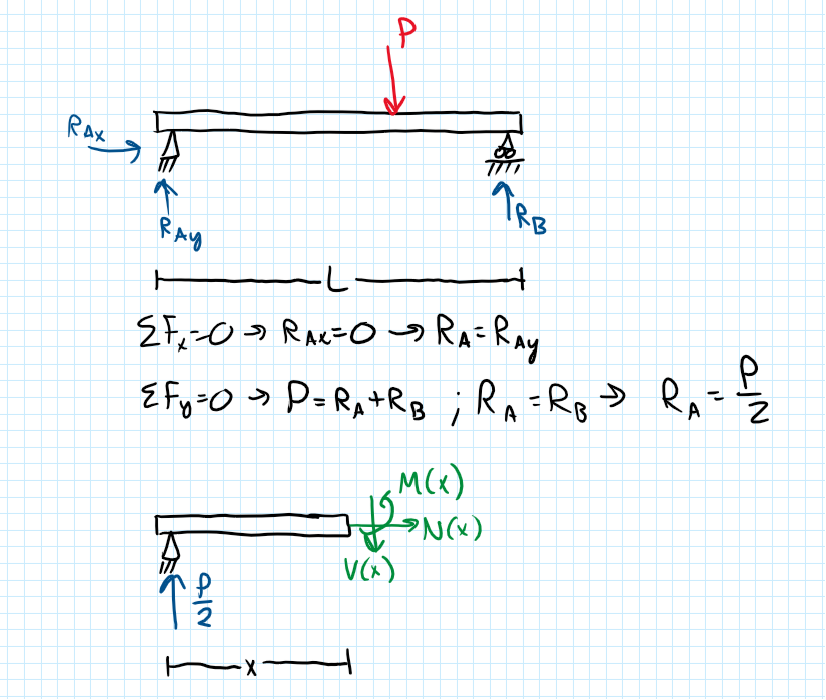 P
R_Ax
R_Ay
R_B
L
ΣF_x=0 → R_Ax=0 → R_A=R_Ay
ΣF_y=0 → P=R_A+R_B ; R_A=R_B → R_A=P/2
M(x)
N(x)
V(x)
P/2
x